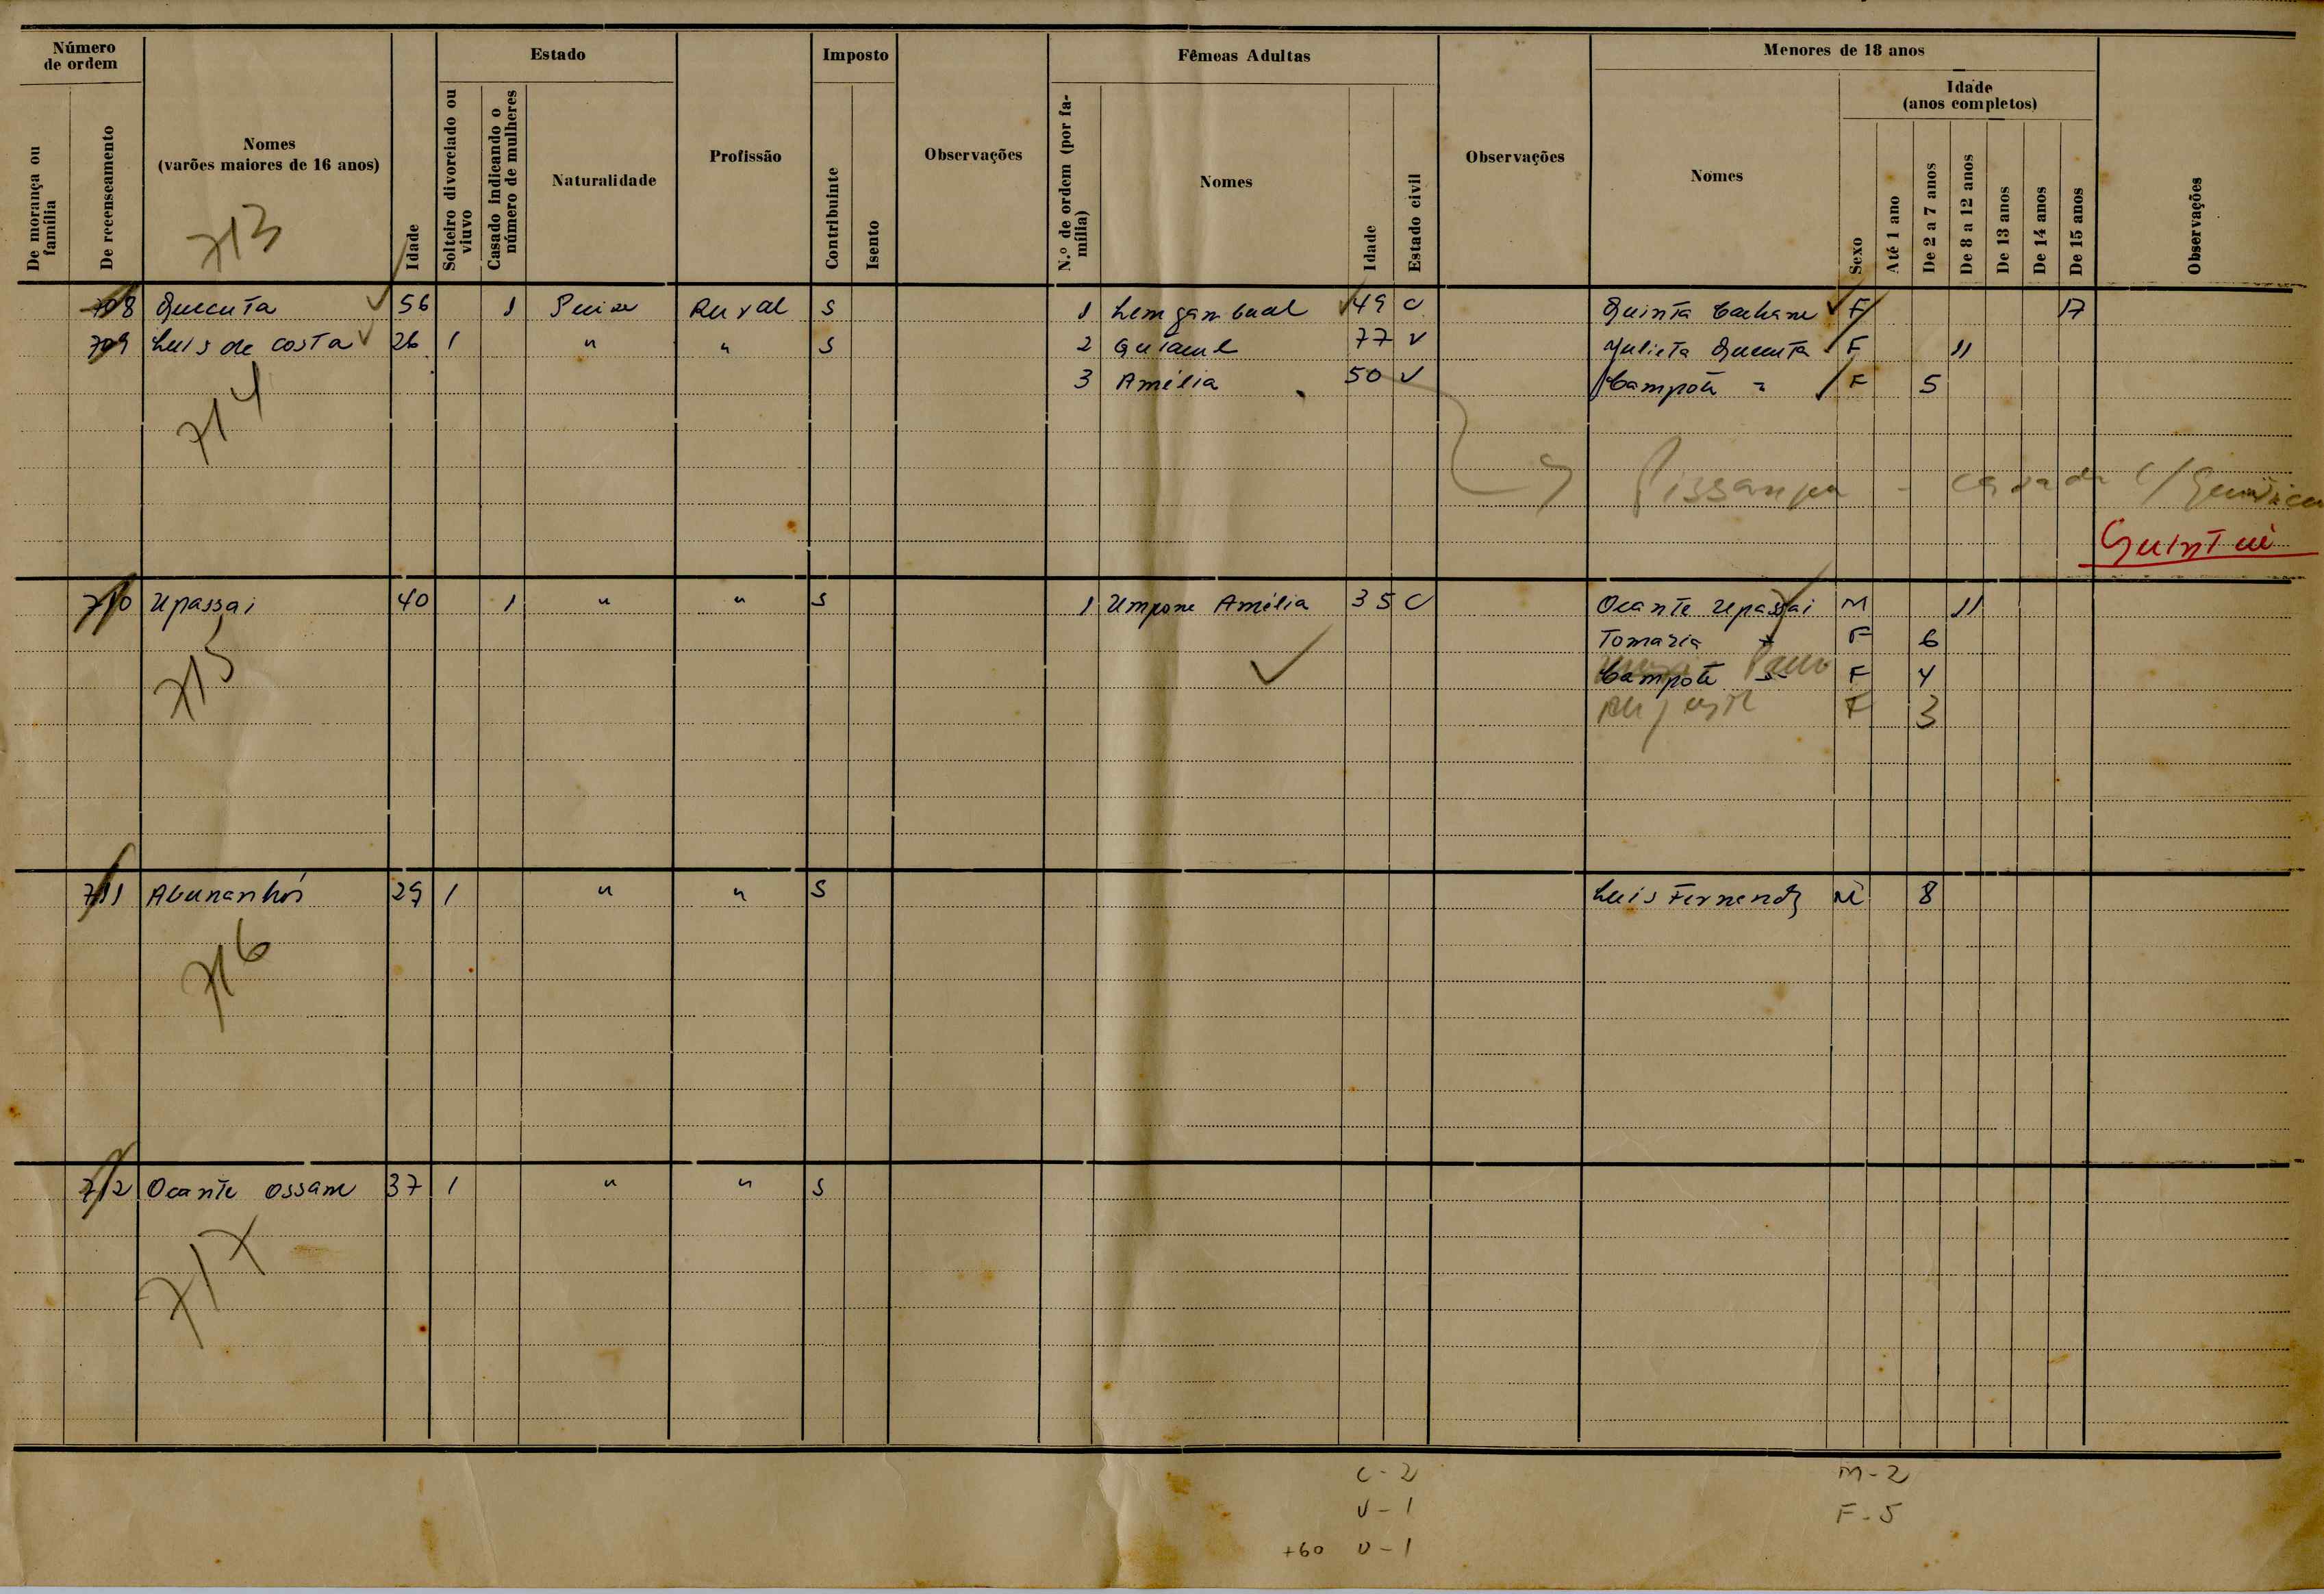 Número de ordem
Estado
Imposto
Fêmeas Adultas
Menores de 18 anos
De morança ou família
De recenseamento
Nomes
(varões maiores de 16 anos)
Idade
Solteiro divorciado ou viuvo
Casado indicando o número de mulheres
Naturalidade
Profissão
Contribuinte
Isento
Observações
N.º de ordem (por família)
Nomes
Idade
Estado civil
Observações
Nomes
Sexo
Idade
(anos completos)
Até 1 ano
De 2 a 7 anos
De 8 a 12 anos
De 13 anos
De 14 anos
De 15 anos
Observações
713
708 Quecuta 56 1 Rural S 1 49 C Quinta F 17
709 Luis de costa 26 1 " " S 2 77 V Julieta Quecuta F 11
3 Amélia 50 V Campoti " F 5
714
Pissanga - casada c/
Quintui
710 Upassai 40 1 " " S 1 Umpone Amélia 35 C Ocante Upassai M 11
Tomazia F 6
715
Campoti F 4
F 3
711 29 1 " " S Luis M 8
716
712 Ocante Ossame 37 1 " " S
717
C - 2 M - 2
V - 1 F - 5
+60 V - 1